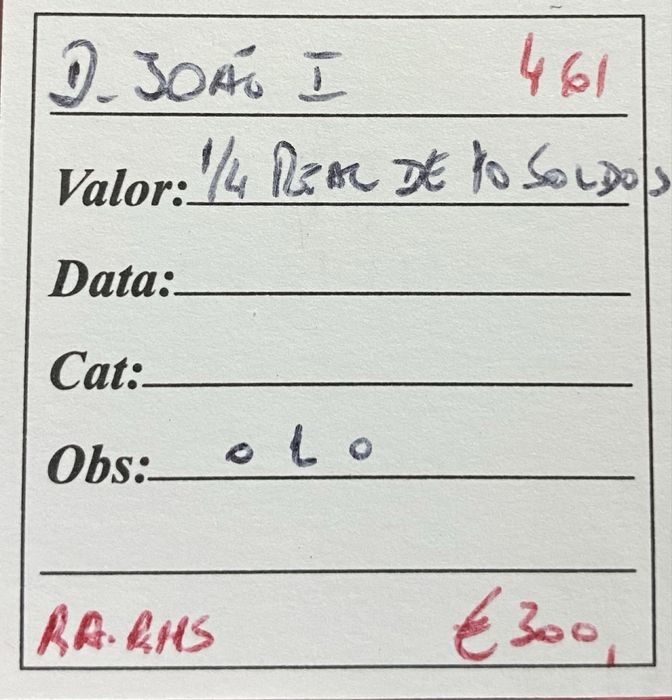 D. JOÃO I 461
Valor: 1/4 REAL DE 10 SOLDOS
Data:
Cat:
Obs: o L o
RA. RHS €300,